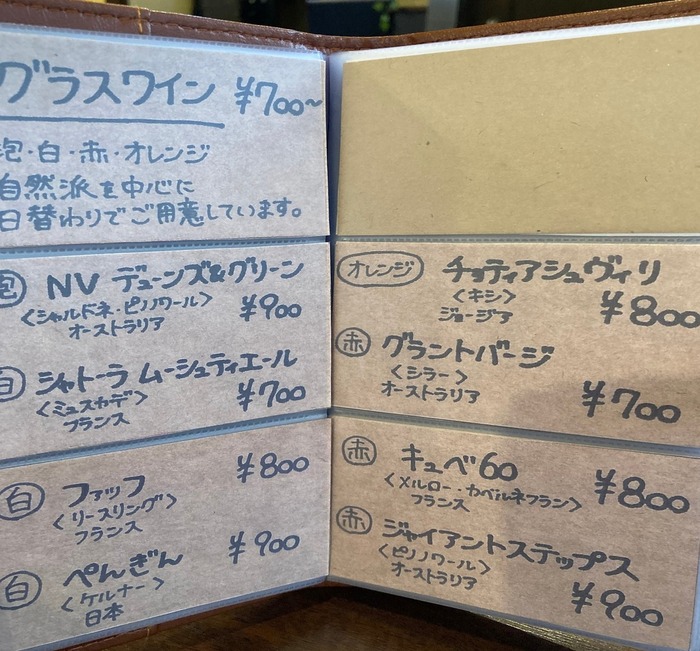 グラスワイン ¥700~
泡・白・赤・オレンジ
自然派を中心に
日替わりでご用意しています。
泡 NV デューンズ&グリーン
<シャルドネ・ピノノワール> ¥900
オーストラリア
白 シャトーラ ムーシュティエール
<ミュスカデ> ¥700
フランス
白 ファッフ ¥800
<リースリング>
フランス
白 ぺんぎん ¥900
<ケルナー>
日本
オレンジ チョティアシュヴィリ
<キシ> ¥800
ジョージア
赤 グラントバージ
<シラー>
オーストラリア ¥700
赤 キュベ60
<メルロー・カベルネフラン> ¥800
フランス
赤 ジャイアントステップス
<ピノノワール>
オーストラリア ¥900